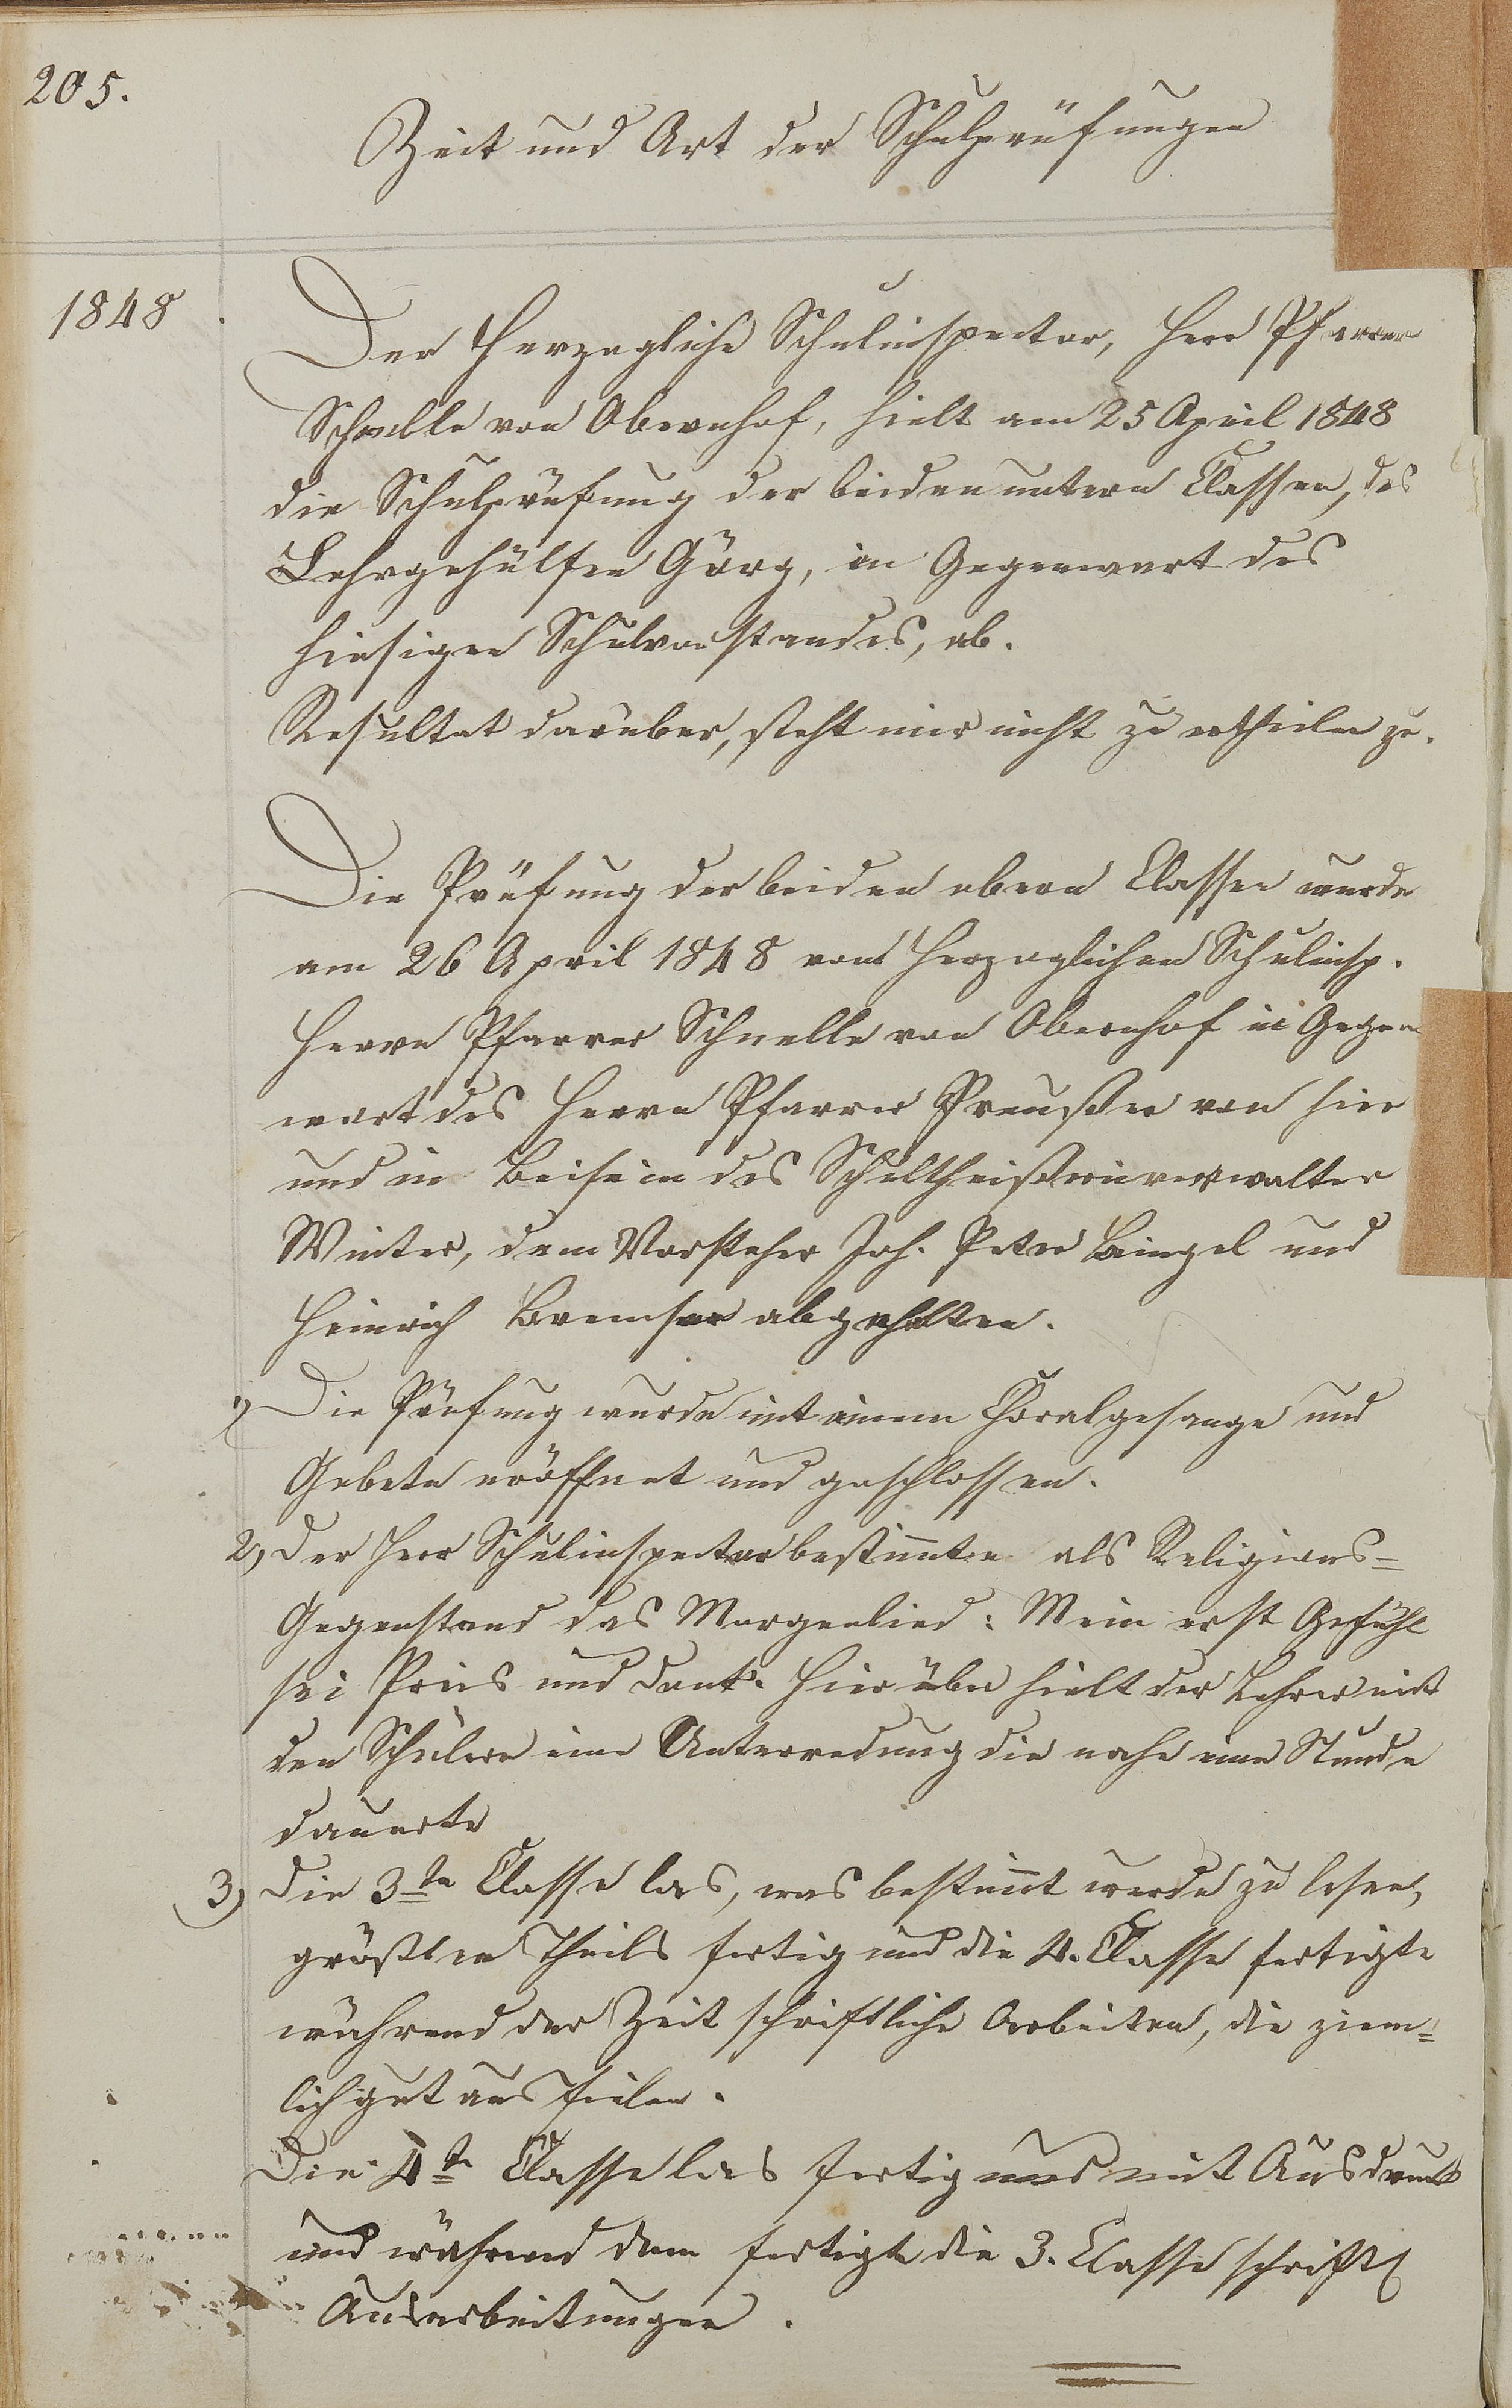 205.
Zeit und Art der Schulprüfungen
1848
Der Herzogliche Schulinspector, Herr Pfarrer
Schnelle von Obernhof, hielt am 25 April 1848
die Schulprüfung der beiden untern Classen, des
Lehrgehülfen Görg, in Gegenwart des
hiesigen Schulvorstandes, ab.
Resultat darüber, steht mir nicht zu ertheilen zu.
Die Prüfung der beiden obern Classen wurde
am 26 April 1848 vom Herzoglichen Schulinsp.
Herrn Pfarrer Schnelle von Obernhof in Gegen
wart des Herrn Pfarrer Preußer von hier
und in Beisein des Schultheißereiverwalter
Winter, dem Vorsteher Joh. Peter Bingel und
Heinrich Bremser abgehalten.
1) Die Prüfung wurde mit einem Choralgesange und
Gebete eröffnet und geschlossen.
2) Der Herr Schulinspector bestimte als Religions-
Gegenstand das Morgenlied: Mein erst Gefühl
sei Preis und Dank. Hierüber hielt der Lehrer mit
den Schülern eine Unterredung die nahe eine Stunde
dauerte
3) Die 3te Classe las, was bestimt wurde zu lesen,
größten Theils fertig und die 4. Classe fertigte
während der Zeit schriftliche Arbeiten, die ziem-
lich gut aus fielen.
Die 4te Classe las fertig und mit Ausdruck
und während dem fertigte die 3. Classe schriftl
Ausarbeitungen.